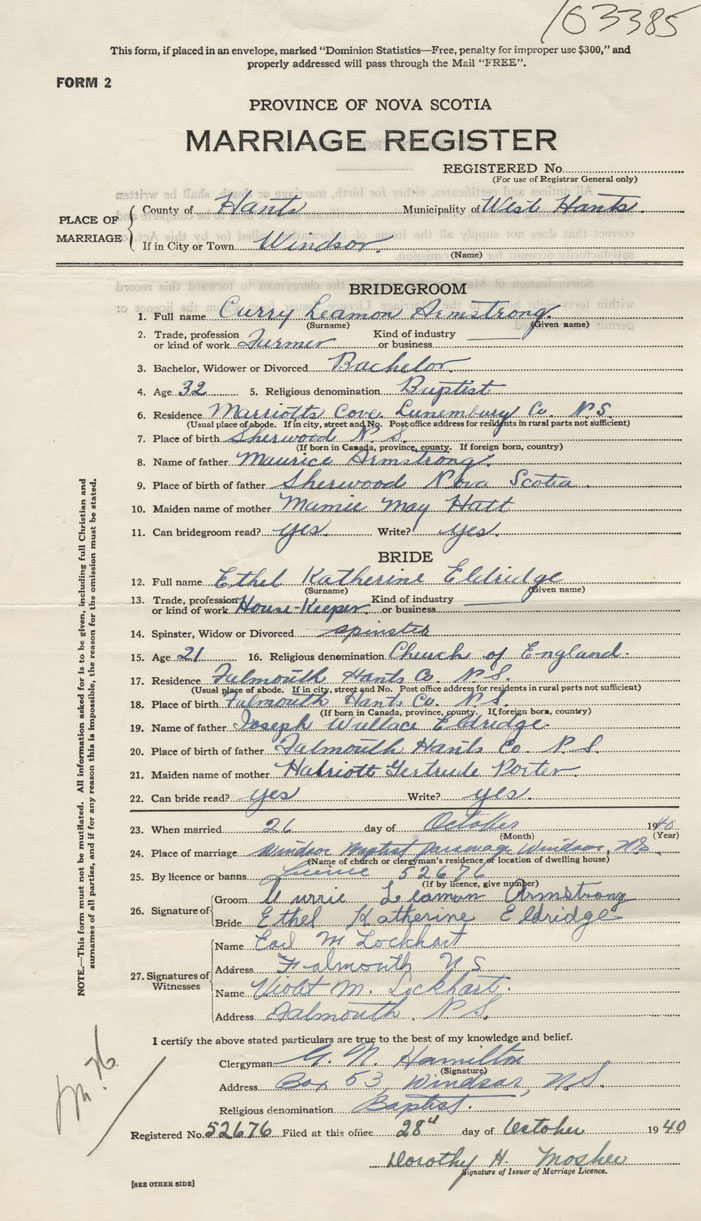 103385
This form, if placed in an envelope, marked "Dominion Statistics—Free, penalty for improper use $300," and
properly addressed will pass through the Mail "FREE".
FORM 2
PROVINCE OF NOVA SCOTIA
MARRIAGE REGISTER
REGISTERED No.
(For use of Registrar General only)
PLACE OF MARRIAGE
County of Hants Municipality of West Hants
If in City or Town Windsor
(Name)
BRIDEGROOM
1. Full name Curry Leamon Armstrong
(Surname) (Given name)
2. Trade, profession or kind of work Farmer Kind of industry or business
3. Bachelor, Widower or Divorced Bachelor
4. Age 32 5. Religious denomination Baptist
6. Residence Marriotts Cove Lunenburg Co. N.S.
(Usual place of abode. If in city, street and No. Post office address for residents in rural parts not sufficient)
7. Place of birth Sherwood N.S.
(If born in Canada, province, county. If foreign born, country)
8. Name of father Maurice Armstrong
9. Place of birth of father Sherwood Nova Scotia
10. Maiden name of mother Mamie May Hatt
11. Can bridegroom read? yes. Write? yes.
BRIDE
12. Full name Ethel Katherine Eldridge
(Surname) (Given name)
13. Trade, profession or kind of work House-Keeper Kind of industry or business
14. Spinster, Widow or Divorced spinster
15. Age 21 16. Religious denomination Church of England.
17. Residence Falmouth Hants Co. N.S.
(Usual place of abode. If in city, street and No. Post office address for residents in rural parts not sufficient)
18. Place of birth Falmouth Hants Co. N.S.
(If born in Canada, province, county. If foreign born, country)
19. Name of father Joseph Wallace Eldridge
20. Place of birth of father Falmouth Hants Co N.S.
21. Maiden name of mother Harriott Gertrude Porter
22. Can bride read? yes Write? yes.
23. When married 26 day of October 1940
(Month) (Year)
24. Place of marriage Windsor Baptist parsonage Windsor, N.S.
(Name of church or clergyman's residence or location of dwelling house)
25. By licence or banns Licence 52676
(If by licence, give number)
26. Signature of
Groom Currie Leaman Armstrong
Bride Ethel Katherine Eldridge
27. Signatures of Witnesses
Name Earl M Lockhart
Address Falmouth N S
Name Violet M. Lockhart.
Address Falmouth, N.S.
I certify the above stated particulars are true to the best of my knowledge and belief.
Clergyman G. N. Hamilton
(Signature)
Address Box 53, Windsor, N.S.
Religious denomination Baptist.
Registered No. 52676 Filed at this office 28th day of October 1940
Dorothy H. Mosher
Signature of Issuer of Marriage Licence.
[SEE OTHER SIDE]
NOTE.—This form must not be mutilated. All information asked for is to be given, including full Christian and
surnames of all parties, and if for any reason this is impossible, the reason for the omission must be stated.